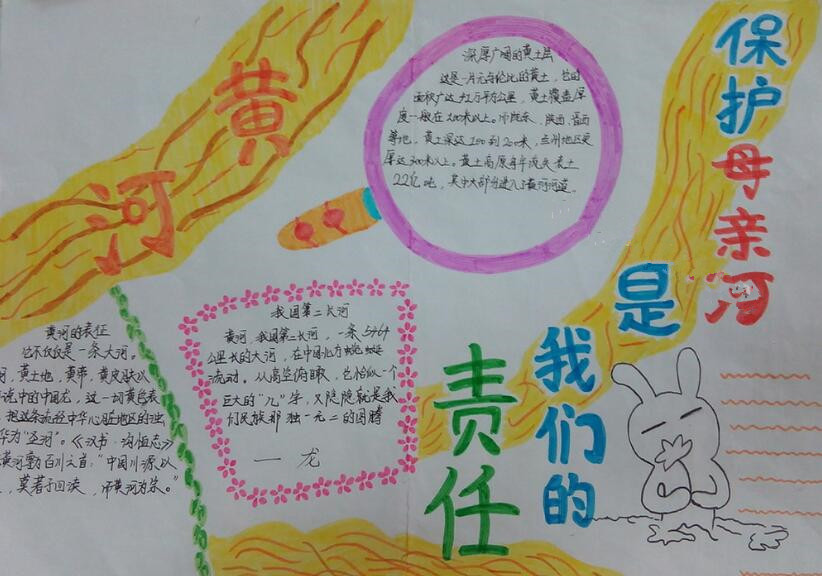 黄河
保护母亲河
是
我们的
责任
深厚广阔的黄土层
这是一片无与伦比的黄土,它的
面积广达42万平方公里,黄土覆盖厚
度一般在100米以上。陕西
等地,黄土深达100到200米,兰州地区更
厚达300米以上。黄土高原每年流失表土
22亿吨,其中大部分进入了黄河河道。
我国第二长河
黄河,我国第二长河,一条5464
公里长的大河,在中国北方蜿蜒
流动。从高空俯瞰,它恰似一个
巨大的“几”字,又隐隐就是我
们民族那独一无二的图腾
——龙
黄河的表征
它不仅仅是一条大河。
河,黄土地,黄帝,黄皮肤以
说中的中国龙,这一切黄色表
把这条流经中华心脏地区的浊
华为“圣河”。《汉书·沟恤志》
黄河尊为百川之首:“中国川源以
,莫著于四渎,而黄河为宗。”